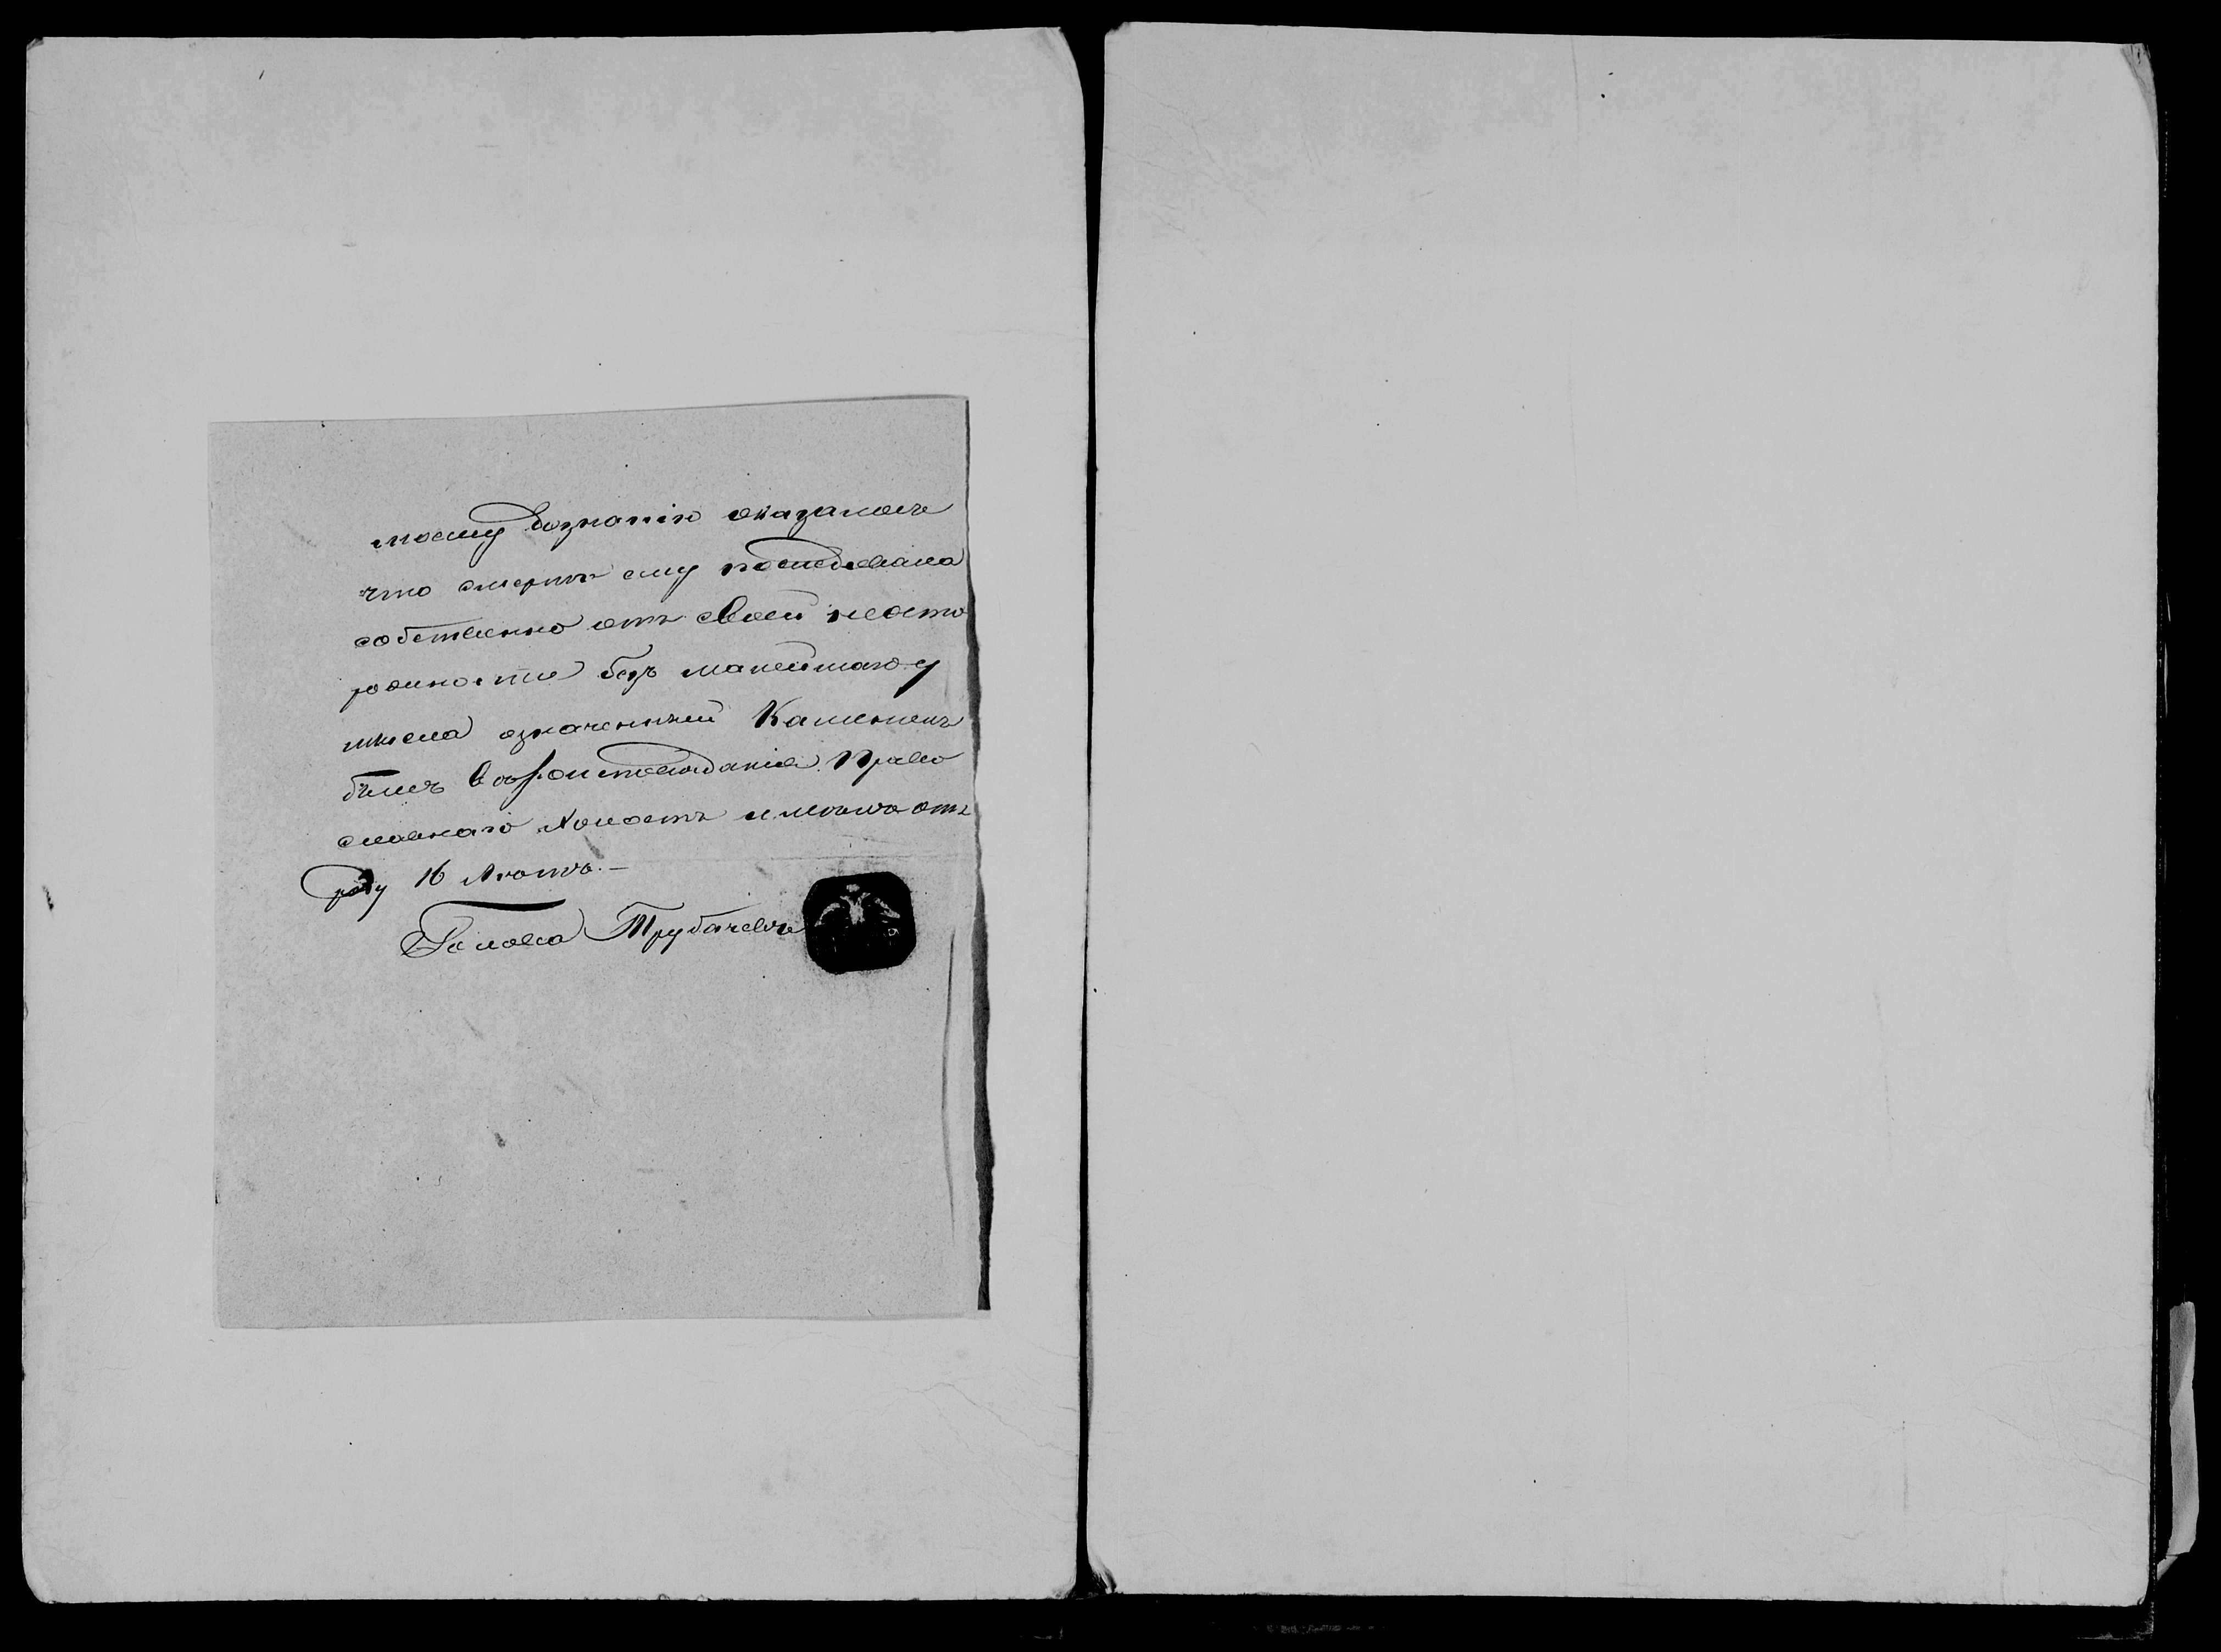 моему дознанію оказалось
что смерть ему последовала
собственно отъ своей неосто
рожности безъ малейшаго у
мысла означенный Каменевъ
былъ вѣроисповѣданія Право
славнаго холостъ имѣлъ отъ
роду 16 лѣтъ. —
Голова Трубачевъ